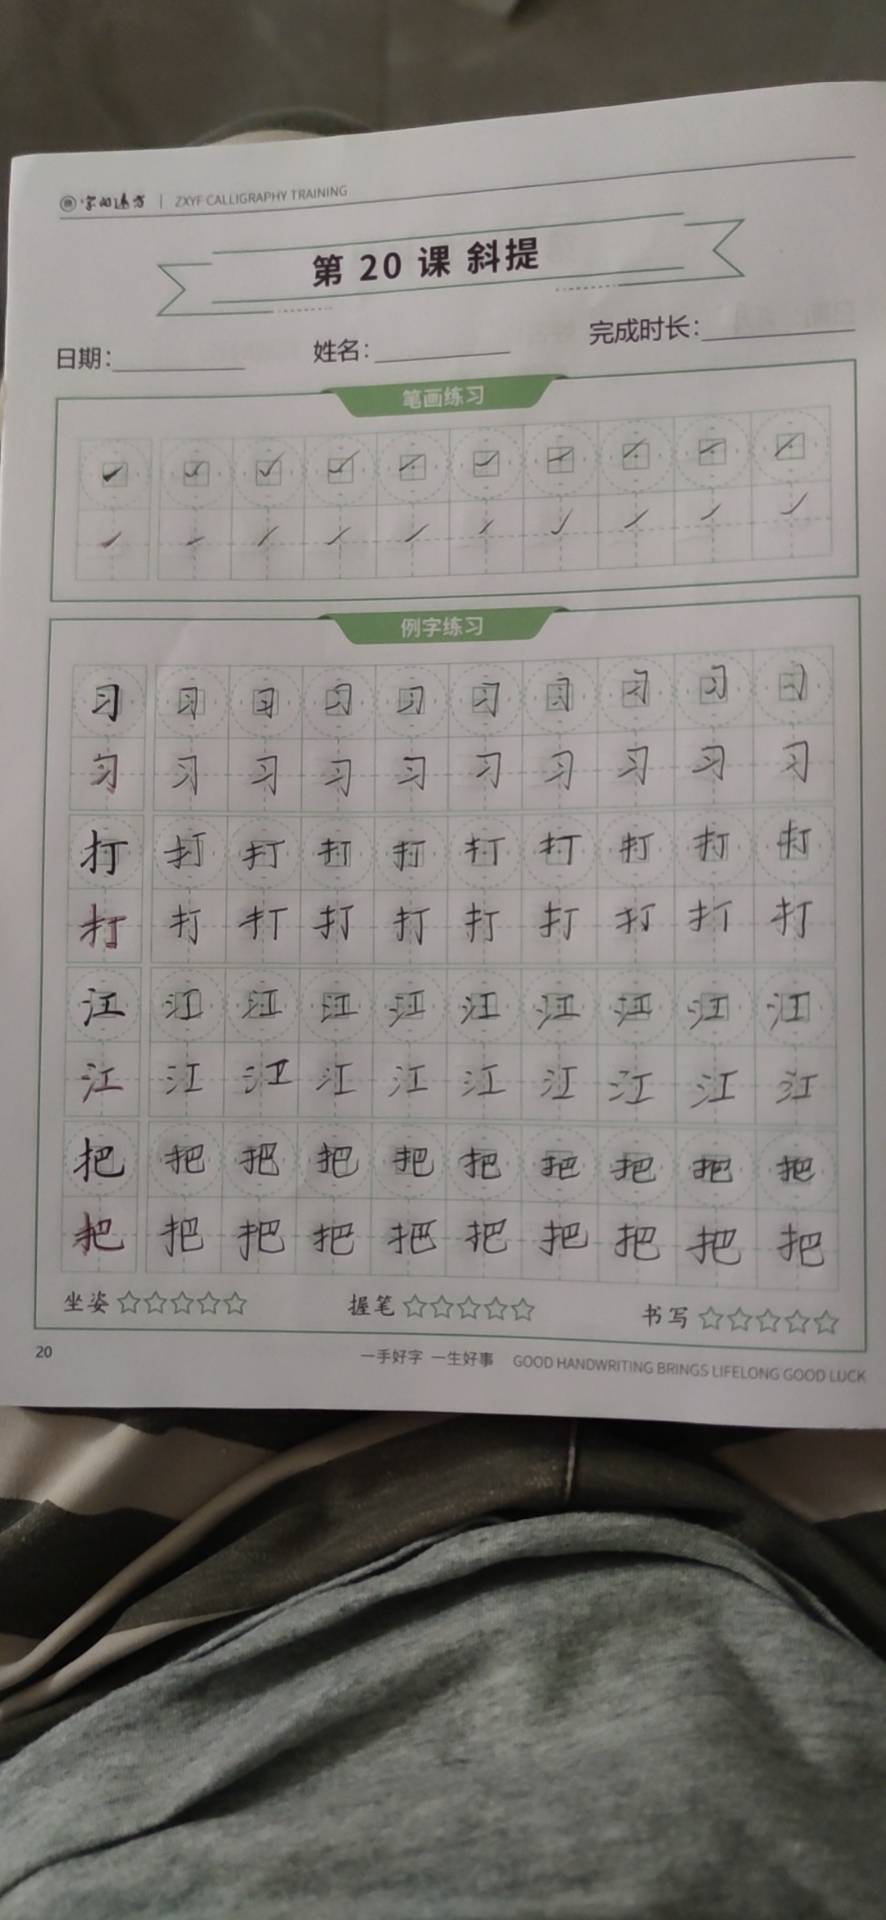 字向远方 | ZXYF CALLIGRAPHY TRAINING
第 20 课 斜提
日期:
姓名:
完成时长:
笔画练习
例字练习
习 习 习 习 习 习 习 习 习 习
习 习 习 习 习 习 习 习 习 习
打 打 打 打 打 打 打 打 打 打
打 打 打 打 打 打 打 打 打 打
江 江 江 江 江 江 江 江 江 江
江 江 江 江 江 江 江 江 江 江
把 把 把 把 把 把 把 把 把 把
把 把 把 把 把 把 把 把 把 把
坐姿 ☆☆☆☆☆ 握笔 ☆☆☆☆☆ 书写 ☆☆☆☆☆
20
一手好字 一生好事 GOOD HANDWRITING BRINGS LIFELONG GOOD LUCK